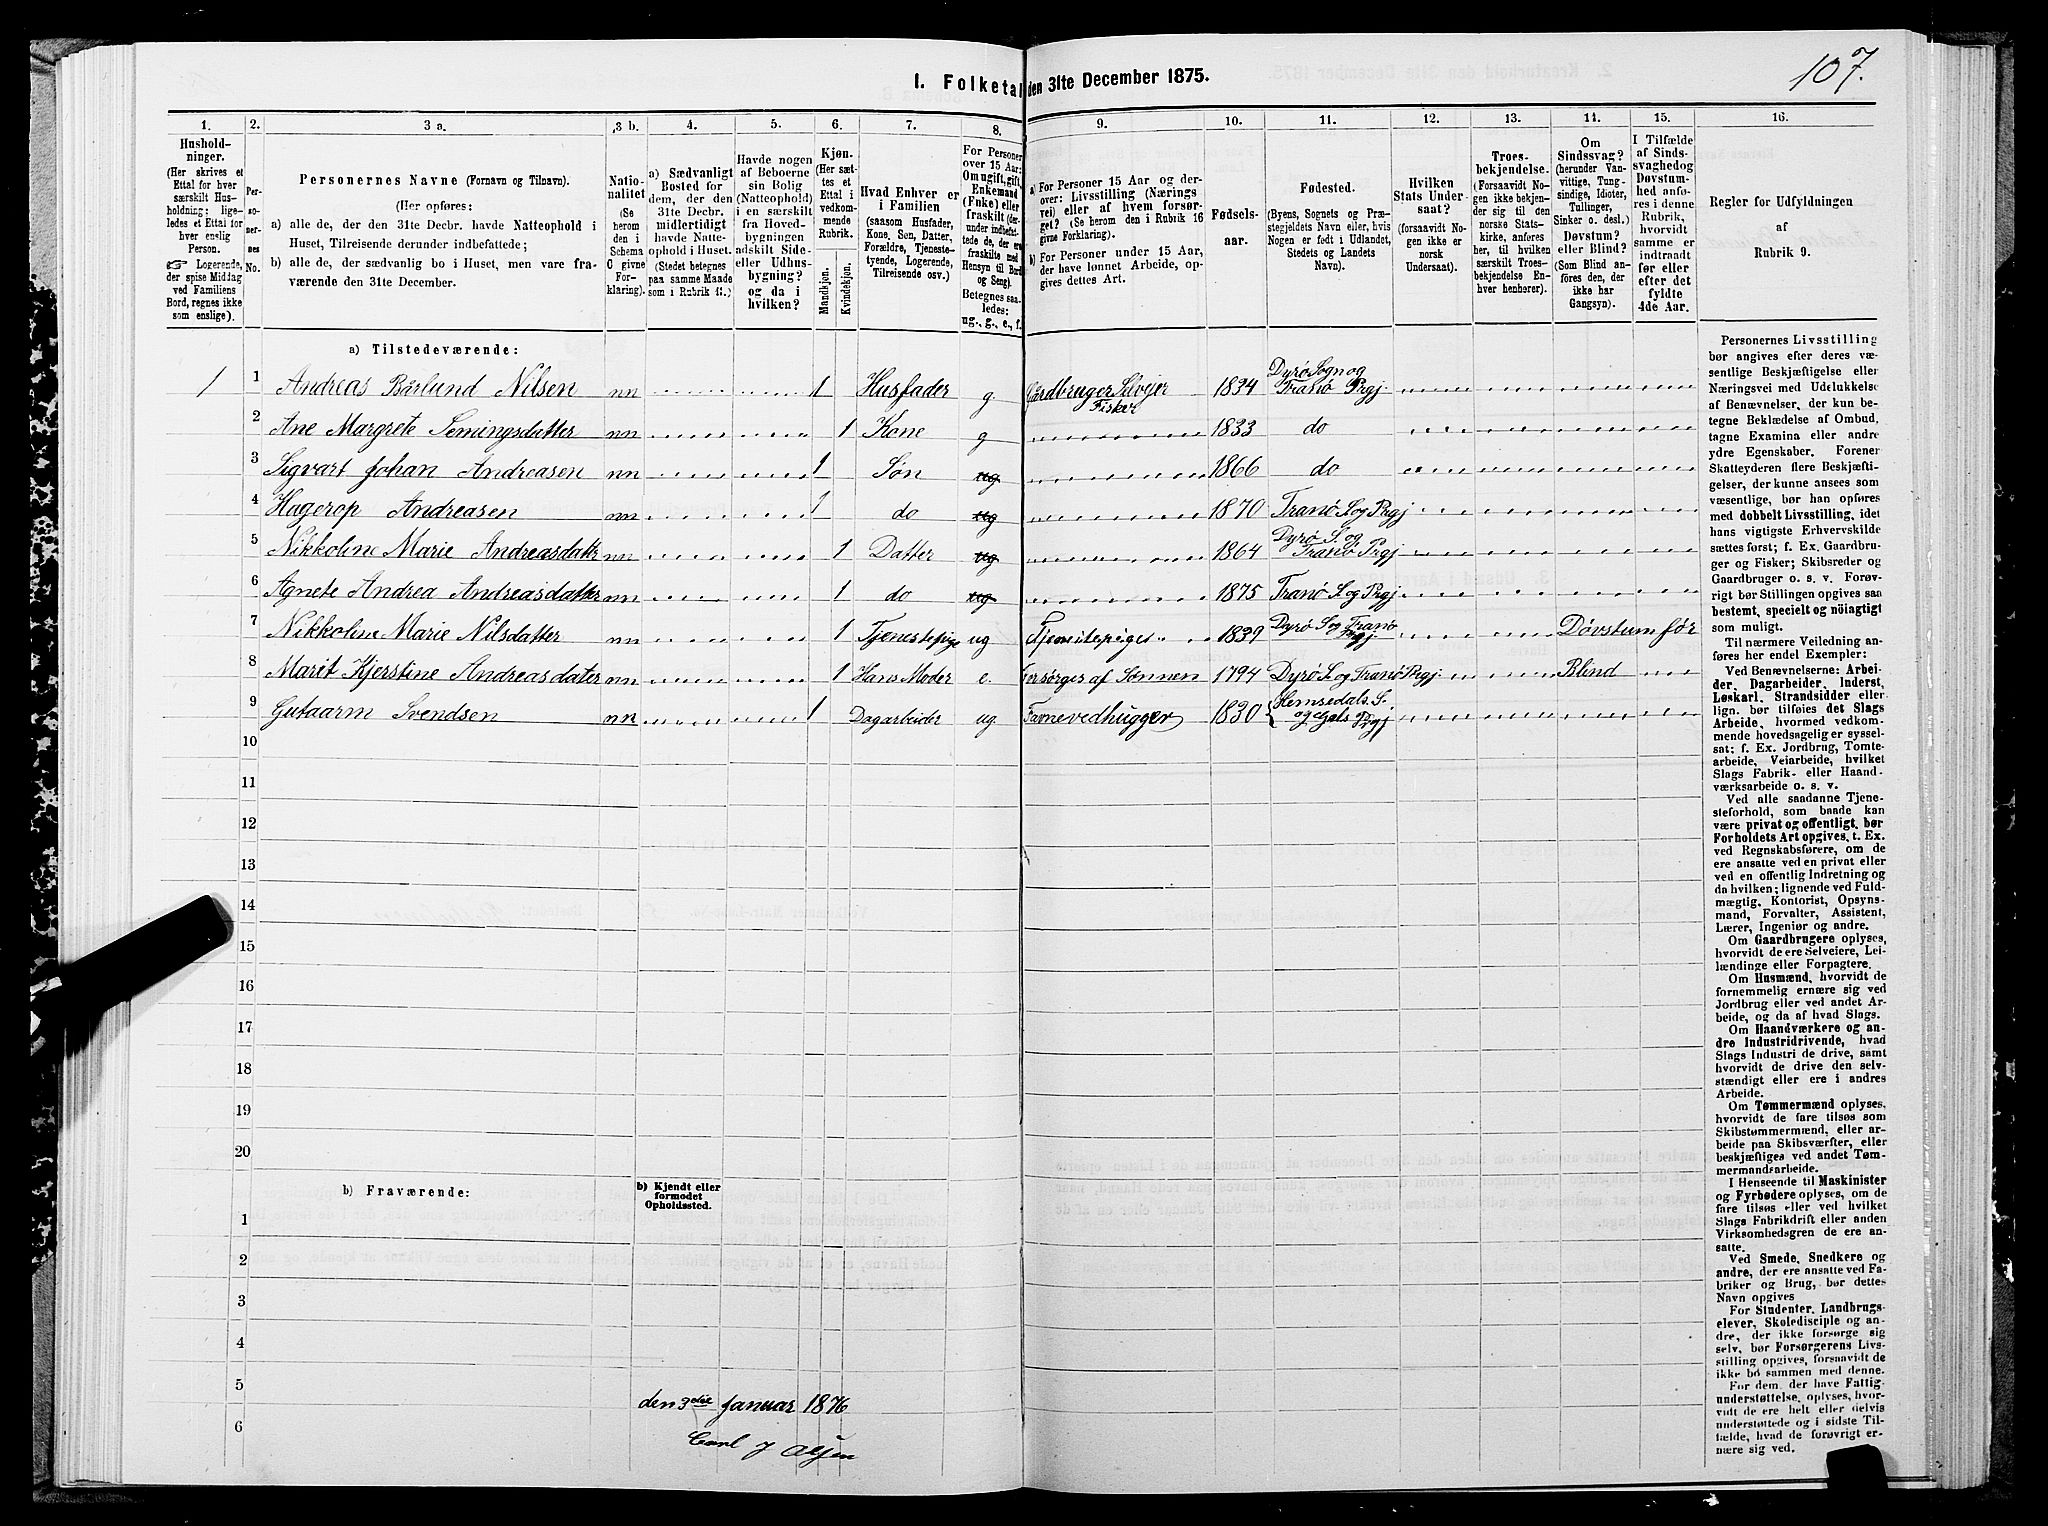 107.
I. Folketal den 31te December 1875.
1. 2. 3 a. 3 b. 4. 5. 6. 7. 8. 9. 10. 11. 12. 13. 11. 15. 16.
Hushold-
ninger.
(Her skrives et
Ettal for hver
særskilt Hus-
holdning; lige-
ledes et Ettal for
hver enslig
Person.
☞ Logerende,
der spise Middag
ved Familiens
Bord, regnes ikke
som enslige).
Per-
so-
ner-
nes
No.
Personernes Navne (Fornavn og Tilnavn).
(Her opføres:
a) alle de, der den 31te Decbr. havde Natteophold i
Huset, Tilreisende derunder indbefattede;
b) alle de, der sædvanlig bo i Huset, men vare fra-
værende den 31te December.
Natio-
nalitet
(Se
herom
den i
Schema
C givne
For-
klaring).
a) Sædvanligt
Bosted for
dem, der den
31te Decbr.
midlertidigt
havde Natte-
ophold i Huset.
(Stedet betegnes
paa samme Maade
som i Rubrik 11.)
Havde nogen
af Beboerne
sin Bolig
(Natteophold)
i en særskilt
fra Hoved-
bygningen
adskilt Side-
eller Udhus-
bygning?
og da i
hvilken?
Kjøn.
(Her sæt-
tes et
Ettal i
vedkom-
mende
Rubrik.
Mandkjøn.
Kvindekjøn.
Hvad Enhver er
i Familien
(saasom Husfader,
Kone, Søn, Datter,
Forældre, Tjeneste-
tyende, Logerende,
Tilreisende osv.)
For Personer
over 15 Aar:
Om ugift, gift,
Enkemand
(Enke) eller
fraskilt (der-
under indbefat-
tede de, der ere
fraskilte med
Hensyn til Bord
og Seng).
Betegnes saa-
ledes:
ug., g., e., f.
a) For Personer 15 Aar og der-
over: Livsstilling (Nærings-
vei) eller af hvem forsør-
get? (Se herom den i Rubrik 16
givne Forklaring).
b) For Personer under 15 Aar,
der have lønnet Arbeide, op-
gives dettes Art.
Fødsels-
aar.
Fødested.
(Byens, Sognets og Præ-
stegjeldets Navn eller, hvis
Nogen er født i Udlandet,
Stedets og Landets
Navn).
Hvilken
Stats Under-
saat?
(forsaavidt No-
gen ikke er
norsk
Undersaat).
Troes-
bekjendelse.
(Forsaavidt No-
gen ikke bekjen-
der sig til den
norske Stats-
kirke, anføres
her, til hvilken
særskilt Troes-
bekjendelse En-
hver henhører).
Om
Sindssvag?
(herunder Van-
vittige, Tung-
sindige, Idioter,
Tullinger,
Sinker o. desl.)
Døvstum?
eller Blind?
(Som Blind an-
føres den, der
ikke har
Gangsyn).
I Tilfælde
af Sinds-
svaghed og
Døvstum-
hed anfø-
res i denne
Rubrik,
hvorvidt
samme er
indtraadt
før eller
efter det
fyldte
4de Aar.
Regler for Udfyldningen
af
Rubrik 9.
a) Tilstedeværende:
1 1 Andreas Bårlund Nilsen nn 1 Husfader g. Gårdbruger Selvejer Fisker 1834 Dyrø Sogn og Tranø Prgj.
2 Ane Margrete Semingsdatter nn 1 Kone g 1833 do
3 Sigvart Johan Andreasen nn 1 Søn ug 1866 do
4 Hagerop Andreasen nn 1 do ug 1870 Tranø S og Prgj
5 Nikkoline Marie Andreasdattr nn 1 Datter ug 1864 Dyrø S. og Tranø Prgj
6 Agnete Andrea Andreasdatter nn 1 do ug 1875 Tranø S og Prgj
7 Nikkoline Marie Nilsdatter nn 1 Tjenestepige ug Tjenestepige 1839 Dyrø S og Tranø Prgj Døvstum før
8 Marit Kjerstine Andreasdater nn 1 Hans Moder e. Forsørges af Sønnen 1794 Dyrø S. og Tranø Prgj. Blind
9 Gutaarm Svendsen nn 1 Dagarbeider ug. Favnevedhugger 1830 Hemsedals S. og Gols Prgj
10
11
12
13
14
15
16
17
18
19
20
b) Fraværende:
b) Kjendt eller
formodet
Opholdssted.
1
2
3
4
5
6
den 3die Januar 1876
Carl J Olsen
Personernes Livsstilling
bør angives efter deres væ-
sentlige Beskjæftigelse eller
Næringsvei med Udelukkelse
af Benævnelser, der kun be-
tegne Beklædelse af Ombud,
tagne Examina eller andre
ydre Egenskaber. Forener
Skatteyderen flere Beskjæfti-
gelser, der kunne ansees som
væsentlige, bør han opføres
med dobbelt Livsstilling, idet
hans vigtigste Erhvervskilde
sættes først; f. Ex. Gaardbru-
ger og Fisker; Skibsreder og
Gaardbruger o. s. v. Forøv-
rigt bør Stillingen opgives saa
bestemt, specielt og nöiagtigt
som muligt.
Til nærmere Veiledning an-
føres her endel Exempler:
Ved Benævnelserne: Arbei-
der, Dagarbeider, Inderst,
Løskarl, Strandsidder eller
lign. bør tilføies det Slags
Arbeide, hvormed vedkom-
mende hovedsagelig er syssel-
sat; f. Ex. Jordbrug, Tomte-
arbeide, Veiarbeide, hvilket
Slags Fabrik- eller Haand-
værksarbeide o. s. v.
Ved alle saadanne Tjene-
steforhold, som baade kan
være privat og offentligt, bør
Forholdets Art opgives, t. Ex.
ved Regnskabsførere, om de
ere ansatte ved en privat eller
ved en offentlig Indretning og
da hvilken; lignende ved Fuld-
mægtig, Kontorist, Opsyns-
mand, Forvalter, Assistent,
Lærer, Ingeniør og andre.
Om Gaardbrugere oplyses,
hvorvidt de ere Selveiere, Lei-
lændinge eller Forpagtere.
Om Husmænd, hvorvidt de
fornemmelig ernære sig ved
Jordbrug eller ved andet Ar-
beide, og da af hvad Slags.
Om Haandværkere og an-
dre Industridrivende, hvad
Slags Industri de drive, samt
hvorvidt de drive den selv-
stændigt eller ere i andres
Arbeide.
Om Tømmermænd oplyses,
hvorvidt de fare tilsøs som
Skibstømmermænd, eller ar-
beide paa Skibsværfter, eller
beskjæftiges ved andet Tøm-
mermandsarbeide.
I Henseende til Maskinister
og Fyrbødere oplyses, om de
fare tilsøs eller ved hvilket
Slags Fabrikdrift eller anden
Virksomhedsgren de ere an-
satte.
Ved Smede, Snedkere og
andre, der ere ansatte ved Fa-
briker og Brug, bør dettes
Navn opgives
For Studenter, Landbrugs-
elever, Skoledisciple og an-
dre, der ikke forsørge sig
selv, bør Forsørgerens Livs-
stilling opgives, forsaavidt de
ikke bo sammen med denne.
For dem, der have Fattig-
understøttelse, oplyses, hvor-
vidt de ere helt eller delvis
understøttede og i sidste Til-
fælde, hvad de forøvrigt er-
nære sig ved.